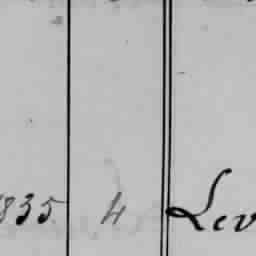 1835 4 Lev